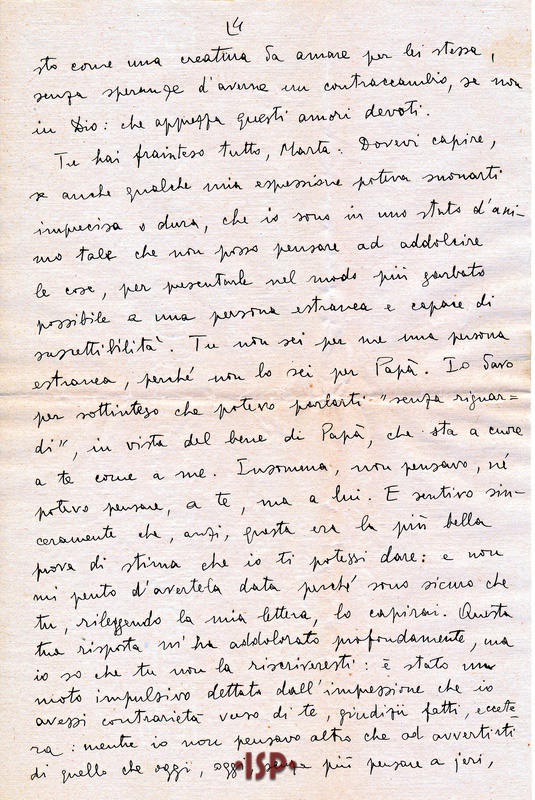 4
sto come una creatura da amare per lei stessa,
senza speranze d'averne un contraccambio, se non
in Dio: che apprezza questi amori devoti.
Tu hai frainteso tutto, Marta. Dovevi capire,
se anche qualche mia espressione poteva suonarti
imprecisa o dura, che io sono in uno stato d'ani-
mo tale che non posso pensare ad addolcire
le cose, per presentarle nel modo più garbato
possibile a una persona estranea e capace di
suscettibilità. Tu non sei per me una persona
estranea, perché non lo sei per Papà. Io davo
per sottinteso che potevo parlarti "senza riguar=
di", in vista del bene di Papà, che sta a cuore
a te come a me. Insomma, non pensavo, né
potevo pensare, a te, ma a lui. E sentivo sin-
ceramente che, anzi, questa era la più bella
prova di stima che io ti potessi dare: e non
mi pento d'avertela data perché sono sicuro che
tu, rileggendo la mia lettera, lo capirai. Questa
tua risposta m'ha addolorato profondamente, ma
io so che tu non la riscriveresti: è stato un
moto impulsivo dettato dall'impressione che io
avessi contrarietà verso di te, giudizii fatti, eccete-
ra: mentre io non pensavo altro che ad avvertirti
di quello che oggi, oggi, senza più pensare a jeri,
·ISP·